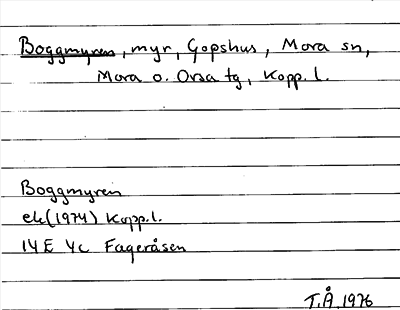 Boggmyren, myr, Gopshus, Mora sn,
Mora o. Orsa tg, Kopp. l.
Boggmyren
ek (1974) Kopp. l.
14E 4c Fageråsen
T.Å. 1976